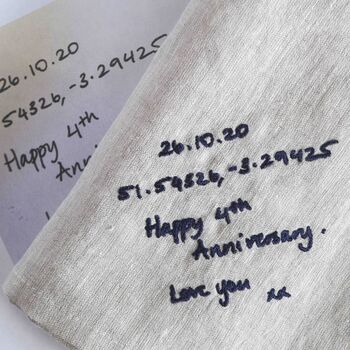 26.10.20
54326,-3.29425
Happy 4th
Ann
26.10.20
51.54326,-3.29425
Happy 4th
Anniversary.
Love you xx